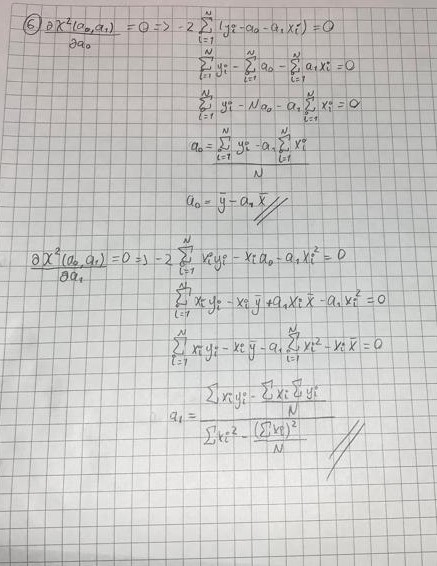 ⑥ ∂X²(a₀,a₁)/∂a₀ = 0 => -2 ∑_{i=1}^{N} (yi - a₀ - a₁xi) = 0
∑_{i=1}^{N} yi - ∑_{i=1}^{N} a₀ - ∑_{i=1}^{N} a₁xi = 0
∑_{i=1}^{N} yi - Na₀ - a₁ ∑_{i=1}^{N} xi = 0
a₀ = (∑_{i=1}^{N} yi - a₁ ∑_{i=1}^{N} xi)/N
a₀ = ȳ - a₁ x̄ //
∂X²(a₀,a₁)/∂a₁ = 0 => -2 ∑_{i=1}^{N} xiyi - xia₀ - a₁xi² = 0
∑_{i=1}^{N} xiyi - xiȳ + a₁xix̄ - a₁xi² = 0
∑_{i=1}^{N} xiyi - xiȳ - a₁ ∑_{i=1}^{N} xi² - xix̄ = 0
a₁ = (∑xiyi - (∑xi∑yi)/N)/(∑xi² - (∑xi)²/N) //